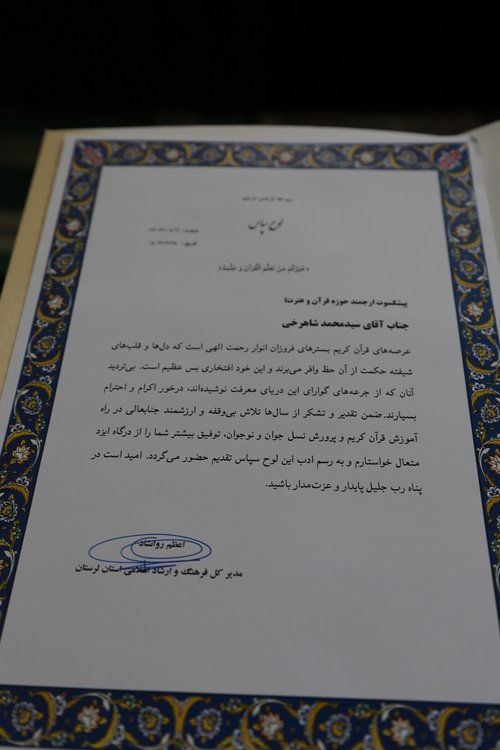 بسم الله الرحمن الرحیم
لوح سپاس
شماره:
تاریخ:
«خَیرُکُم مَن تَعَلَّمَ القُرآنَ وَ عَلَّمَهُ»
پیشکسوت ارجمند حوزه قرآن و عترت؛
جناب آقای سیدمحمد شاهرخی
عرصه‌های قرآن کریم بسترهای فروزان انوار رحمت الهی است که دل‌ها و قلب‌های
شیفته حکمت از آن حظ وافر می‌برند و این خود افتخاری بس عظیم است. بی‌تردید
آنان که از جرعه‌های گوارای این دریای معرفت نوشیده‌اند، درخور اکرام و احترام
بسیارند. ضمن تقدیر و تشکر از سال‌ها تلاش بی‌وقفه و ارزشمند جنابعالی در راه
آموزش قرآن کریم و پرورش نسل جوان و نوجوان، توفیق بیشتر شما را از درگاه ایزد
متعال خواستارم و به رسم ادب این لوح سپاس تقدیم حضور می‌گردد. امید است در
پناه رب جلیل پایدار و عزت‌مدار باشید.
اعظم روانشاد
مدیر کل فرهنگ و ارشاد اسلامی استان لرستان